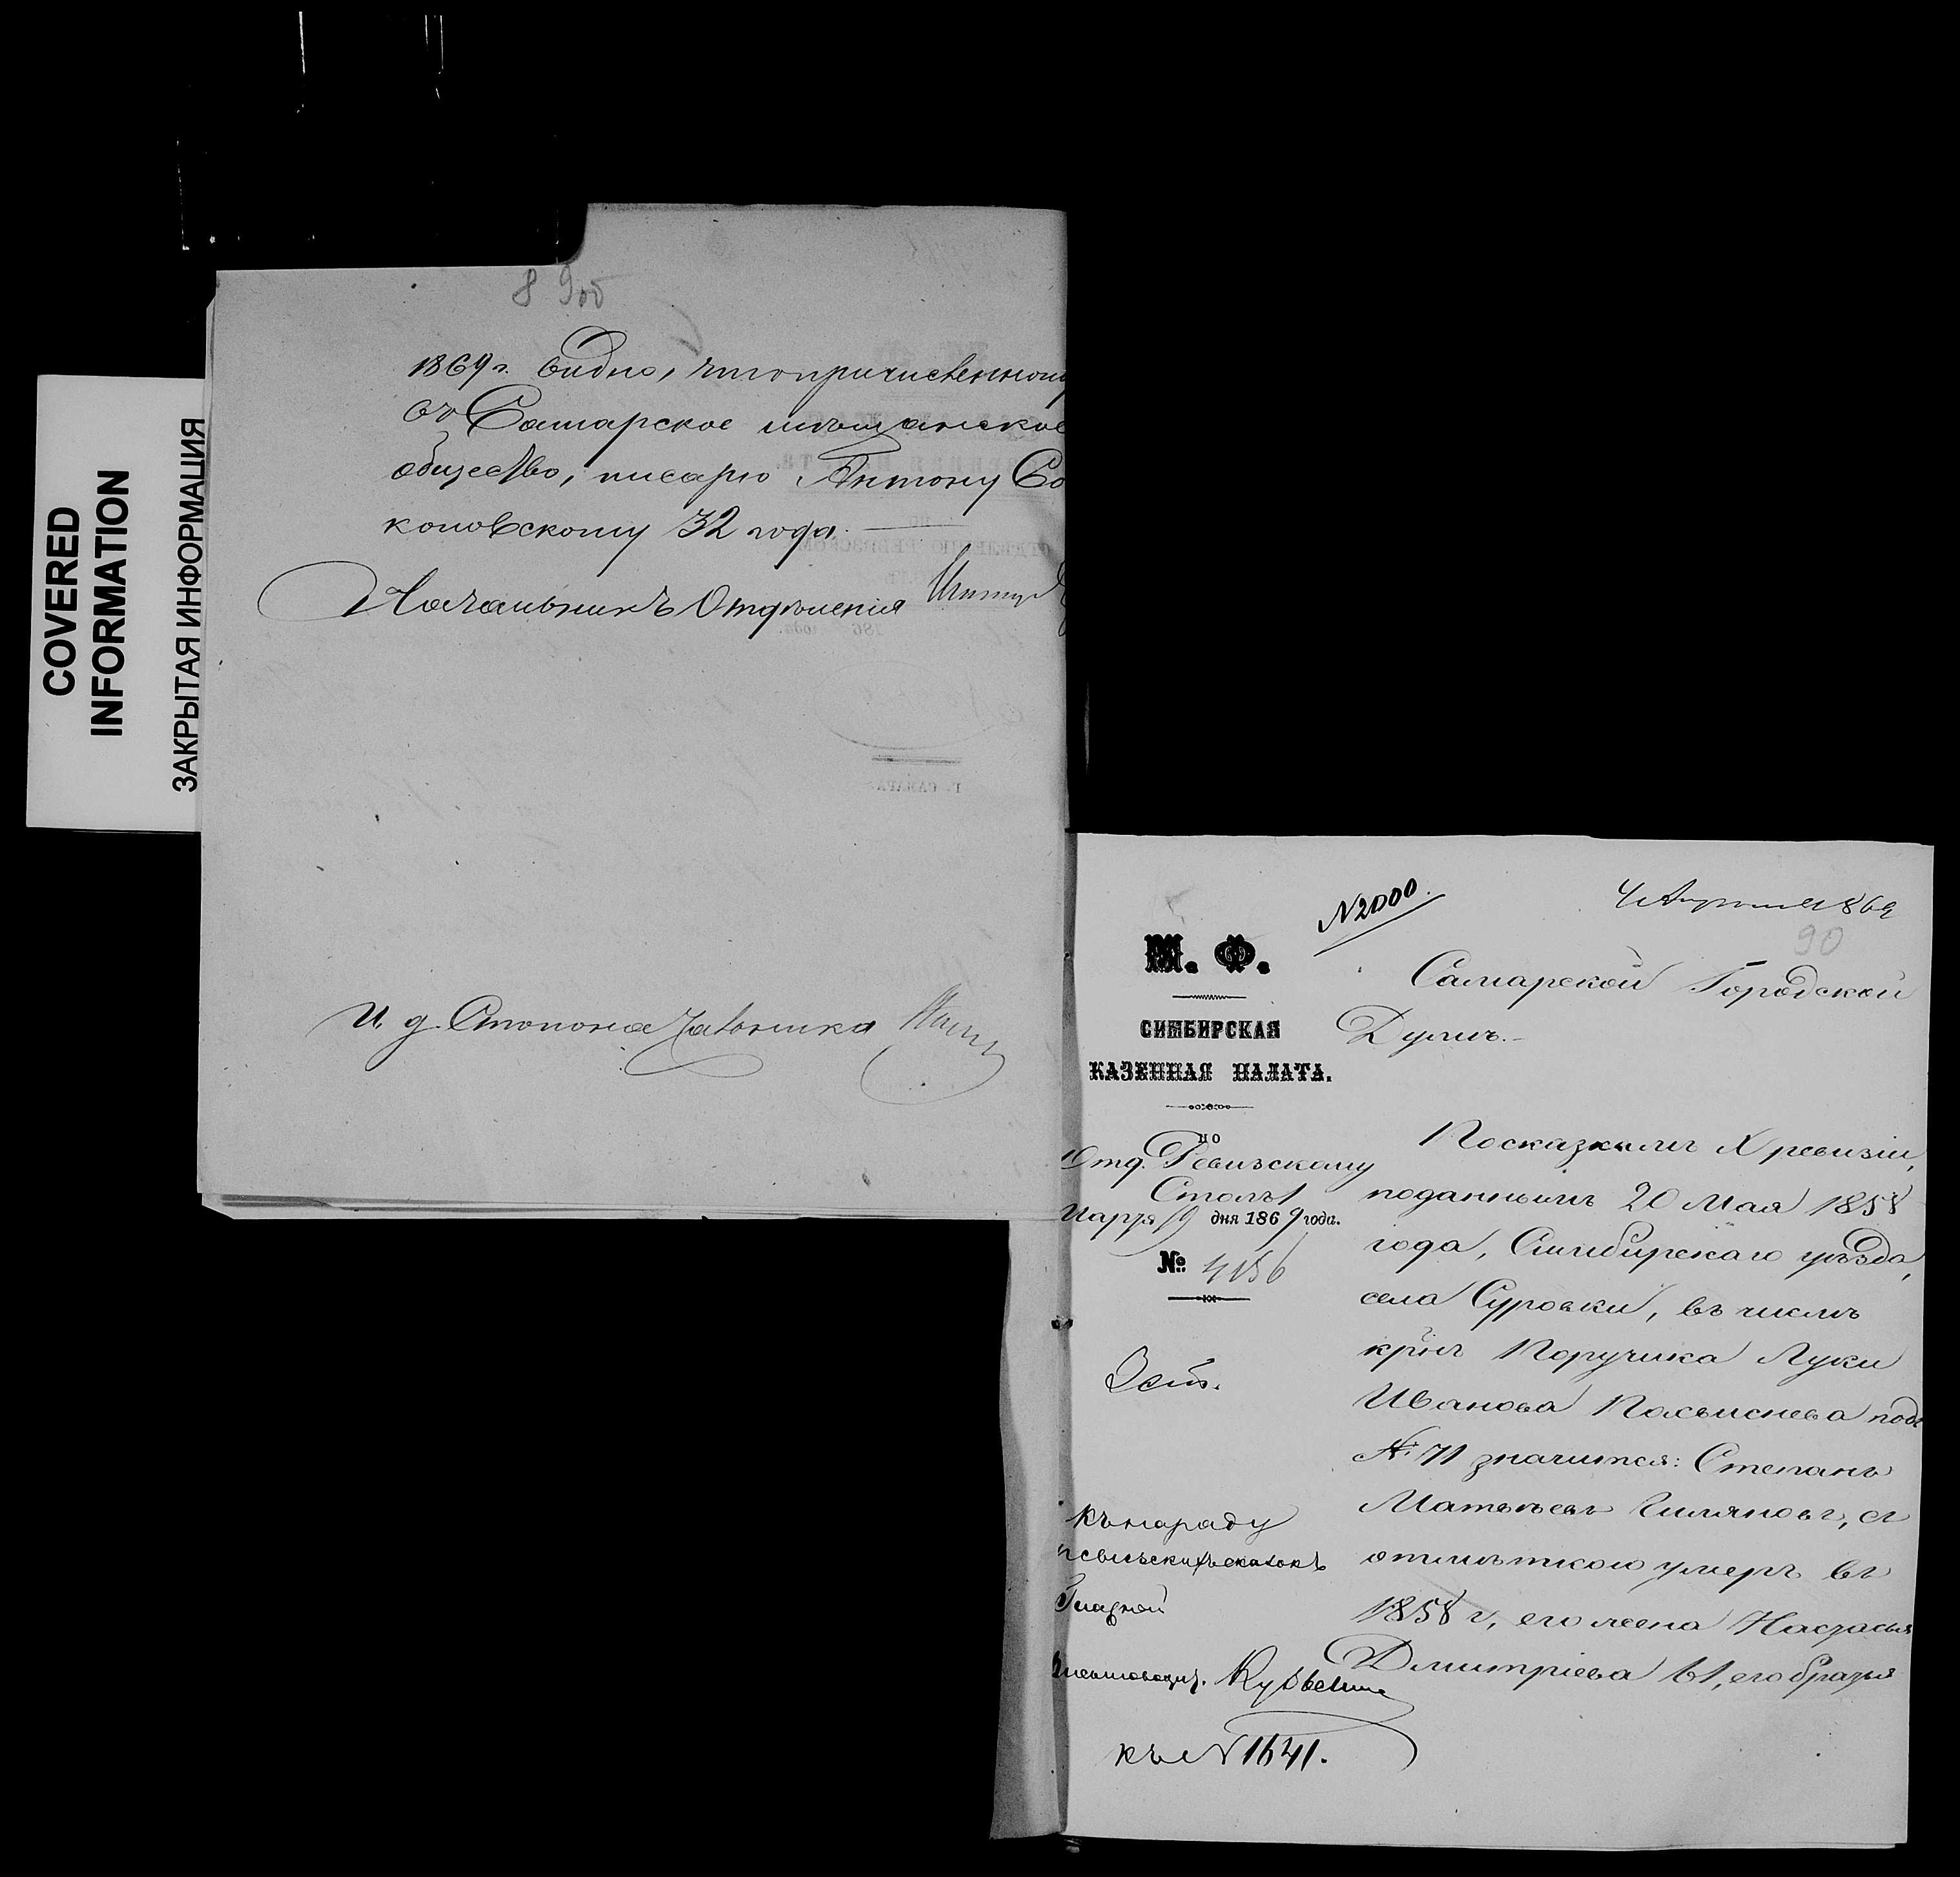 COVERED
INFORMATION
ЗАКРЫТАЯ ИНФОРМАЦИЯ
89об
1869 г. видно, что причисленному
въ Самарское мѣщанское
общество, писарю Антону Со
коловскому 32 года.
Начальникъ Отдѣленія
И. д. Столоначальника
№ 2000.
4 Апрѣля 1869
90
М. Ф.
СИМБИРСКАЯ
КАЗЕННАЯ ПАЛАТА.
ПО
Отд. Ревизскому
Столъ 1
Марта 19 дня 1869 года.
№ 4156
Самарской Городской
Думѣ.
По сказкамъ X ревизіи,
поданнымъ 20 Мая 1858
года, Симбирскаго уѣзда,
села Суровки, въ числѣ
крнъ Поручика Луки
Иванова подъ
№ 71 значится: Степанъ
Матвѣевъ, съ
отмѣткою умеръ въ
1858 г, его жена Настасья
Дмитріева 61, его братья
Къ наряду
ревизскихъ сказокъ
къ № 1641.